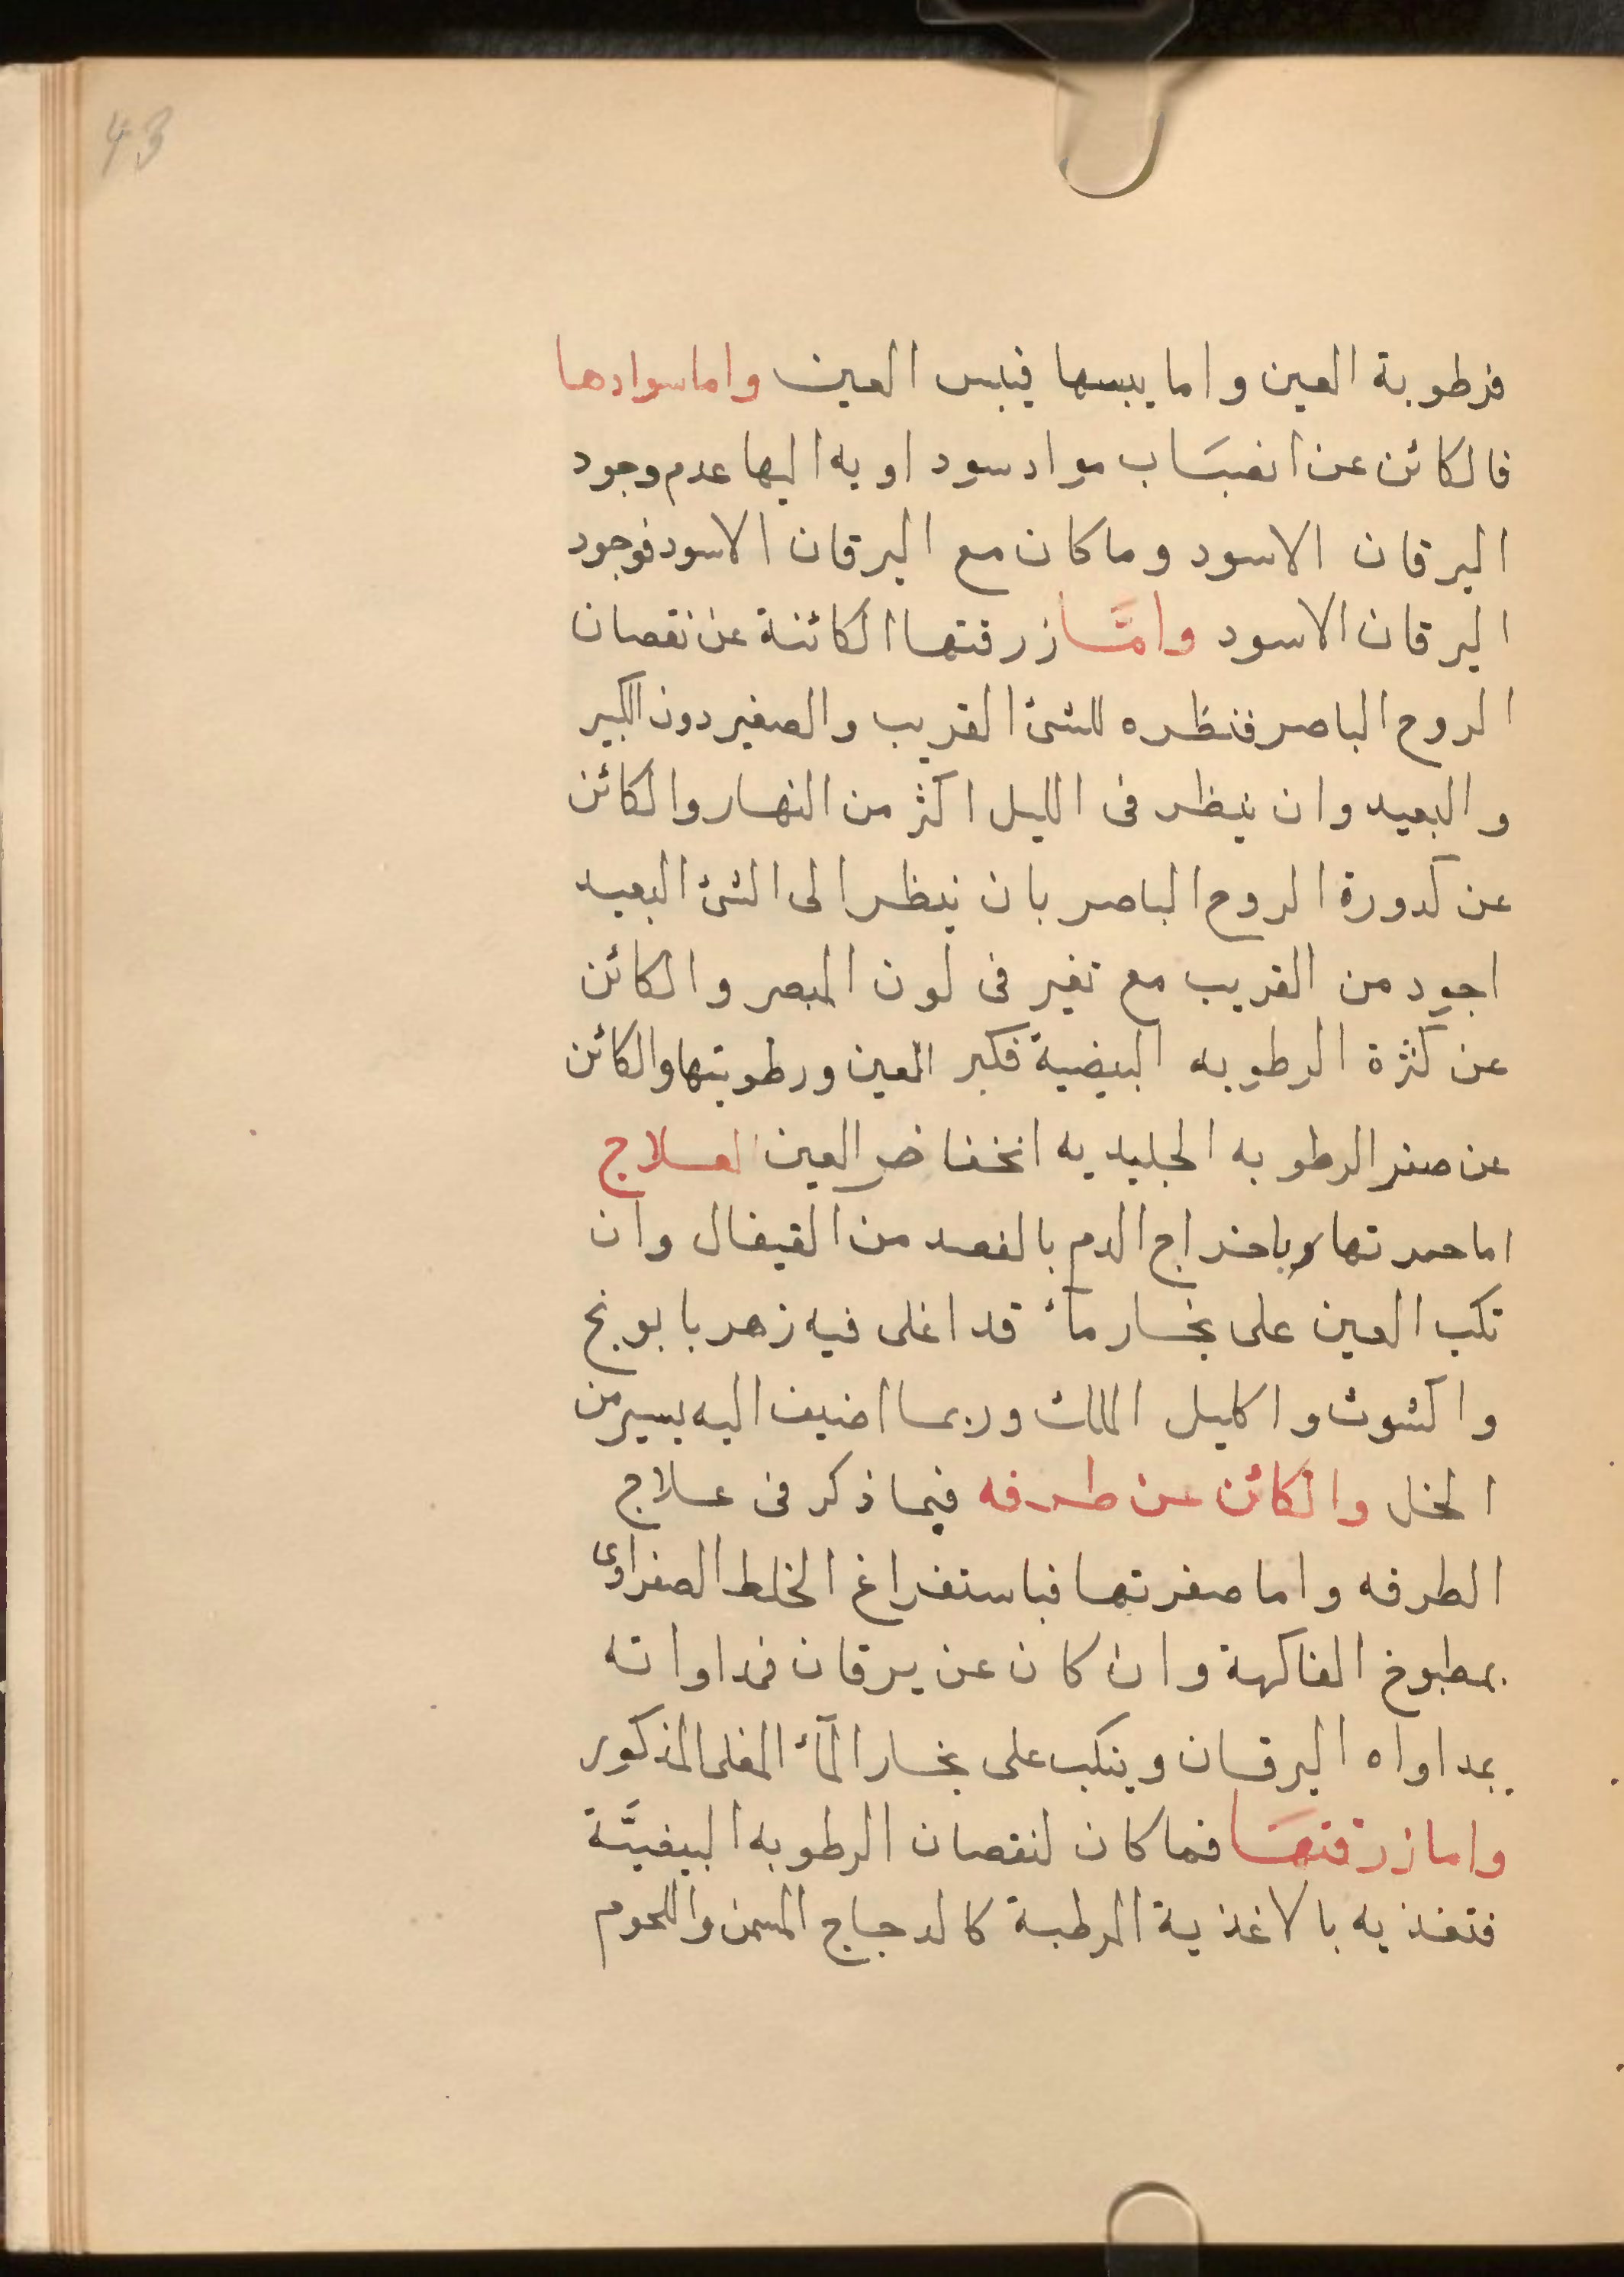 43
فرطوبة العين واما يبسها فيبس العين واما سوادها
فالكائن عن انصبَاب مواد سوداويه اليها عدم وجود
اليرقان الاسود وما كان مع اليرقان الاسود فوجود
اليرقان الاسود وامَّا زرقتها الكائنة عن نقصان
الروح الباصر فنظره للشئ القريب والصغير دون الكبير
والبعيد وان ينظر فى الليل اكثر من النهار والكائن
عن كدورة الروح الباصر بان ينظر الى الشئ البعيد
اجود من القريب مع تغير فى لون المبصر والكائن
عن كثرة الرطوبه البيضية فكبر العين ورطوبتها والكائن
عن صغر الرطوبه الجليديه انخفاض العين العلاج
اما حمرتها وباخراج الدم بالفصد من القيفال وان
تكب العين على بخار مائ قد اغلى فيه زهر بابونج
واكشوث واكليل الملك وربما اضيف اليه يسير من
الخل والكائن عن طرفه فيما ذكر فى علاج
الطرفه واما صفرتها فباستفراغ الخلط الصفراوى
بمطبوخ الفاكهة وان كان عن يرقان فمداواته
بمداواه اليرقان وينكب على بخار المآئ المغلى المذكور
واما زرقتهَا فما كان لنقصان الرطوبه البيضيَّة
فتغذيه بالاغذية المرطبة كالدجاج المسمن واللحوم